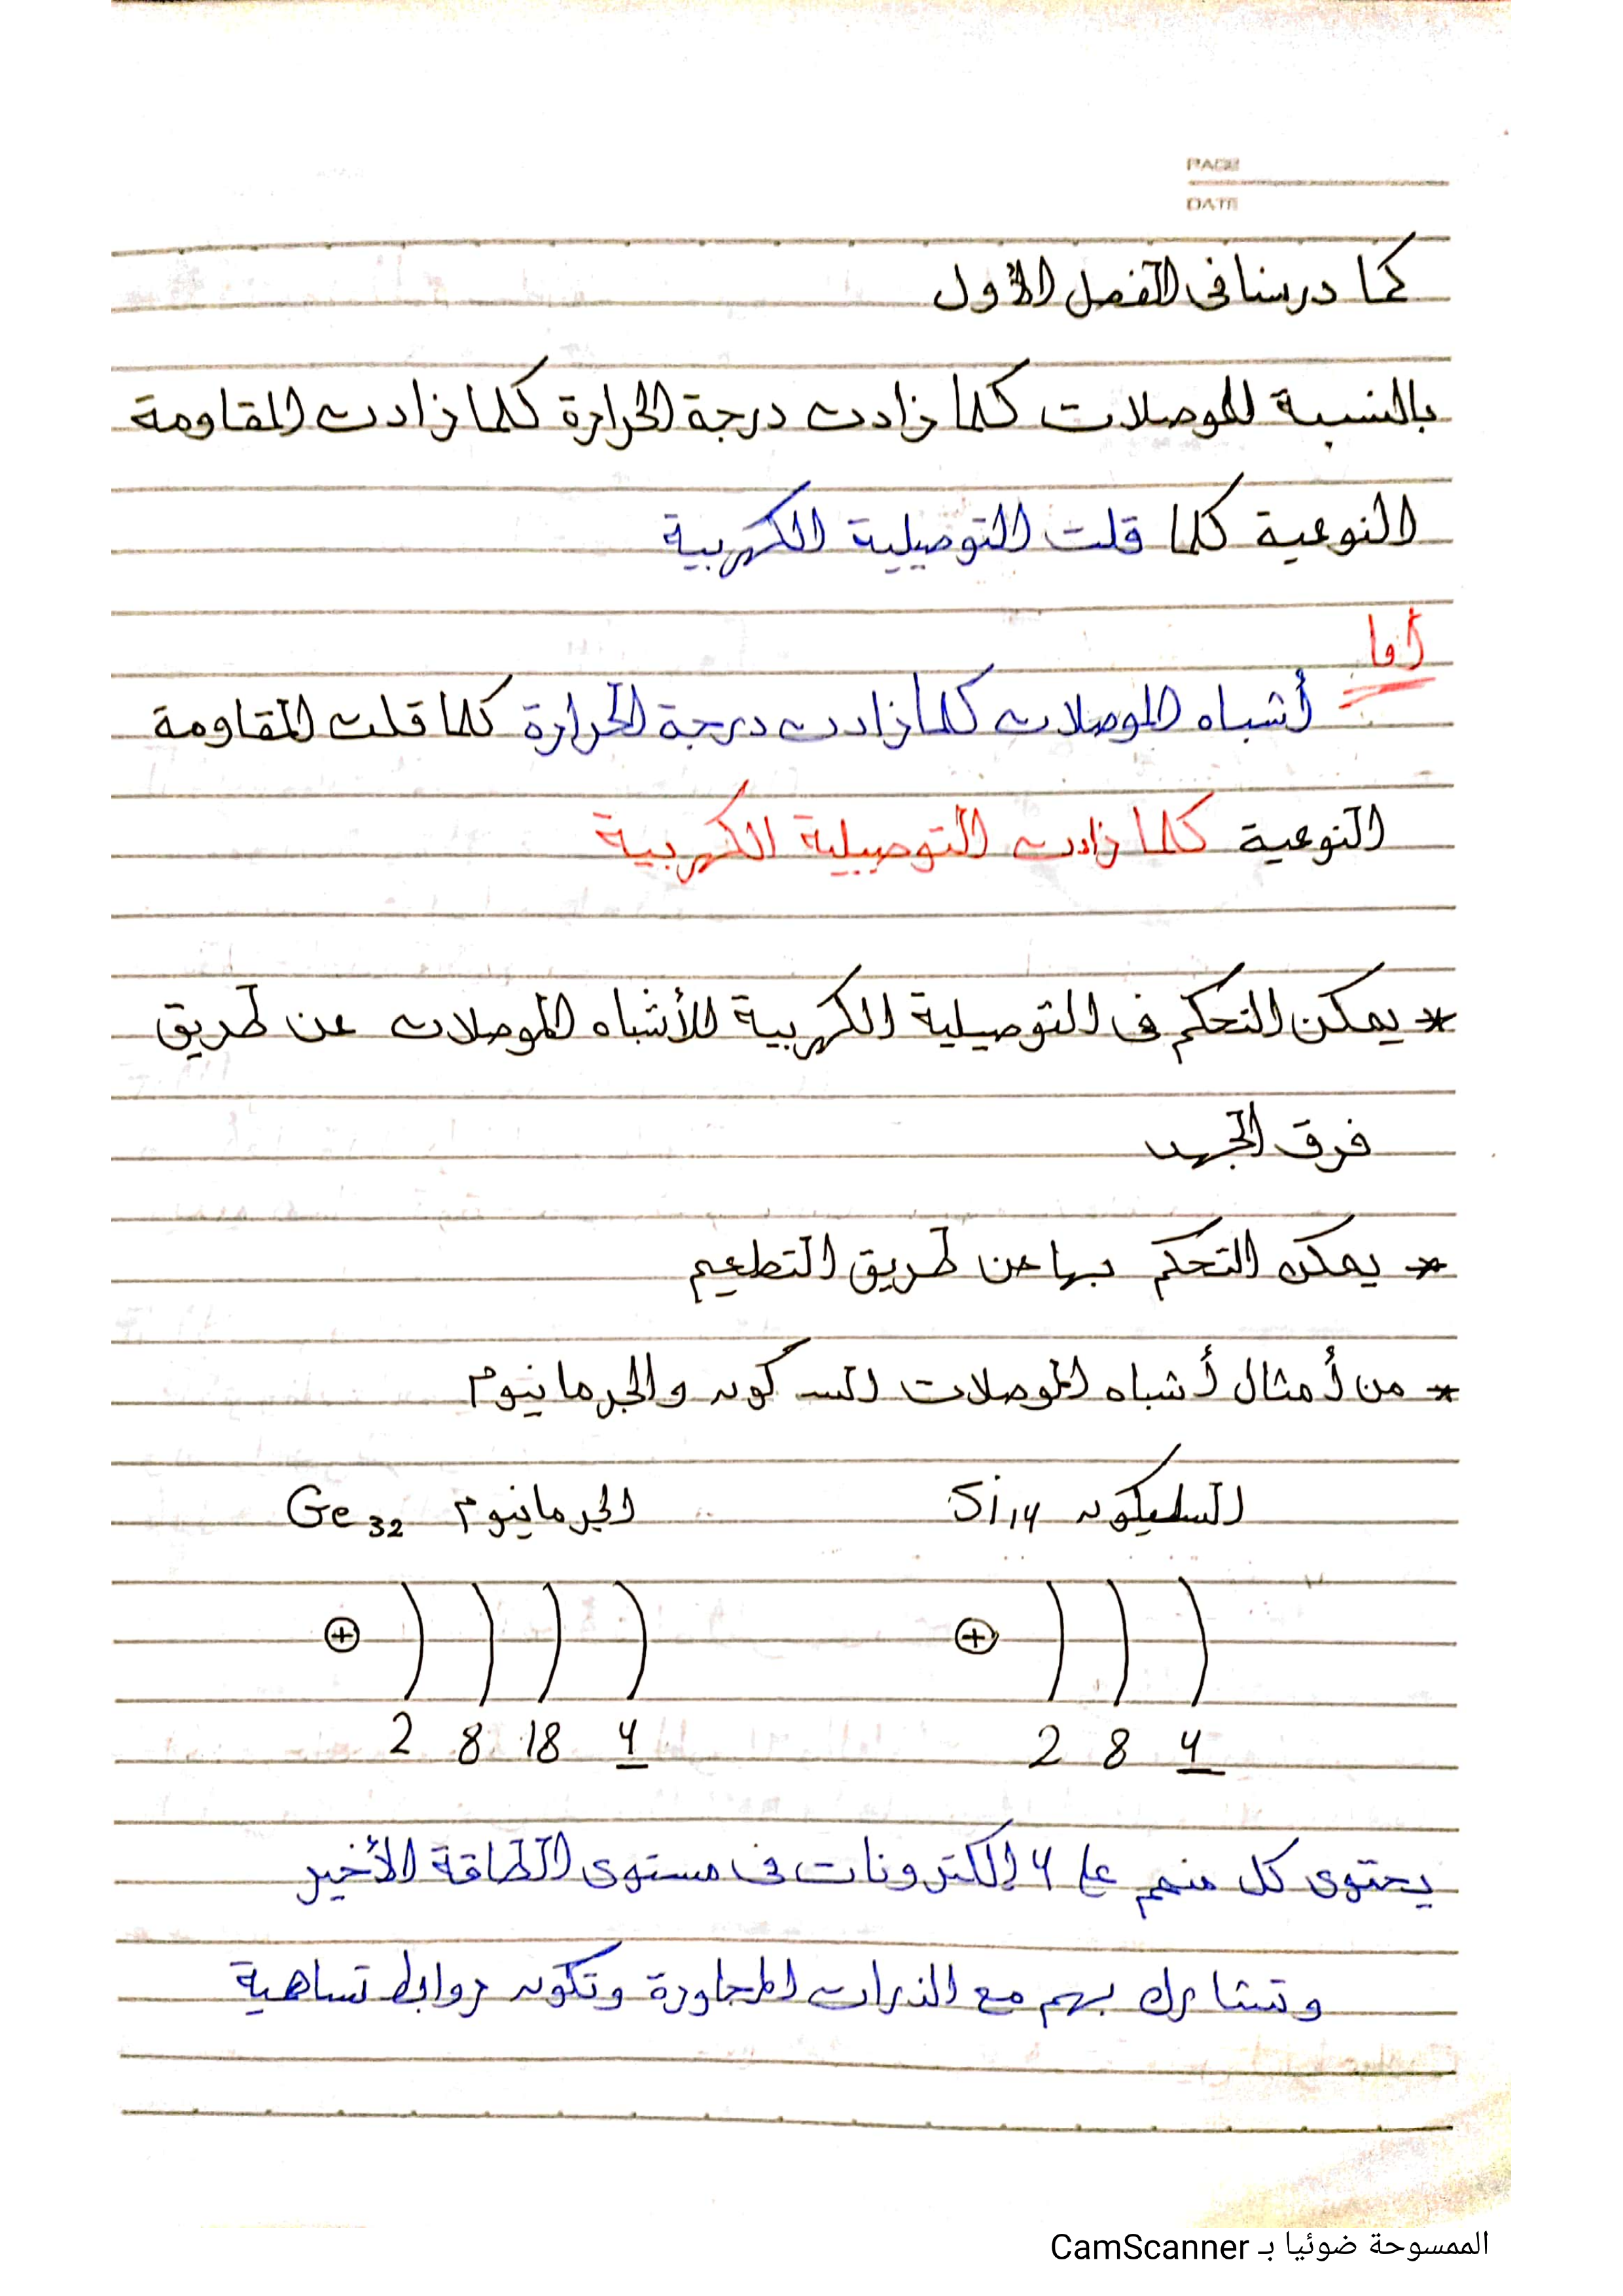 PAGE
DATE
كما درسنا فى الفصل الأول
بالنسبة للموصلات كلما زادت درجة الحرارة كلما زادت المقاومة
النوعية كلما قلت التوصيلية الكهربية
أما
أشباه الموصلات كلما زادت درجة الحرارة كلما قلت المقاومة
النوعية كلما زادت التوصيلية الكهربية
* يمكن التحكم فى التوصيلية الكهربية للأشباه الموصلات عن طريق
فرق الجهد
* يمكن التحكم بها عن طريق التطعيم
* من أمثال أشباه الموصلات السكون والجرمانيوم
السليكون Si14 الجرمانيوم Ge32
+ +
2 8 4 2 8 18 4
يحتوى كل منهم على 4 إلكترونات فى مستوى الطاقة الأخير
وتتشارك بهم مع الذرات المجاورة وتكون روابط تساهمية
الممسوحة ضوئيا بـ CamScanner